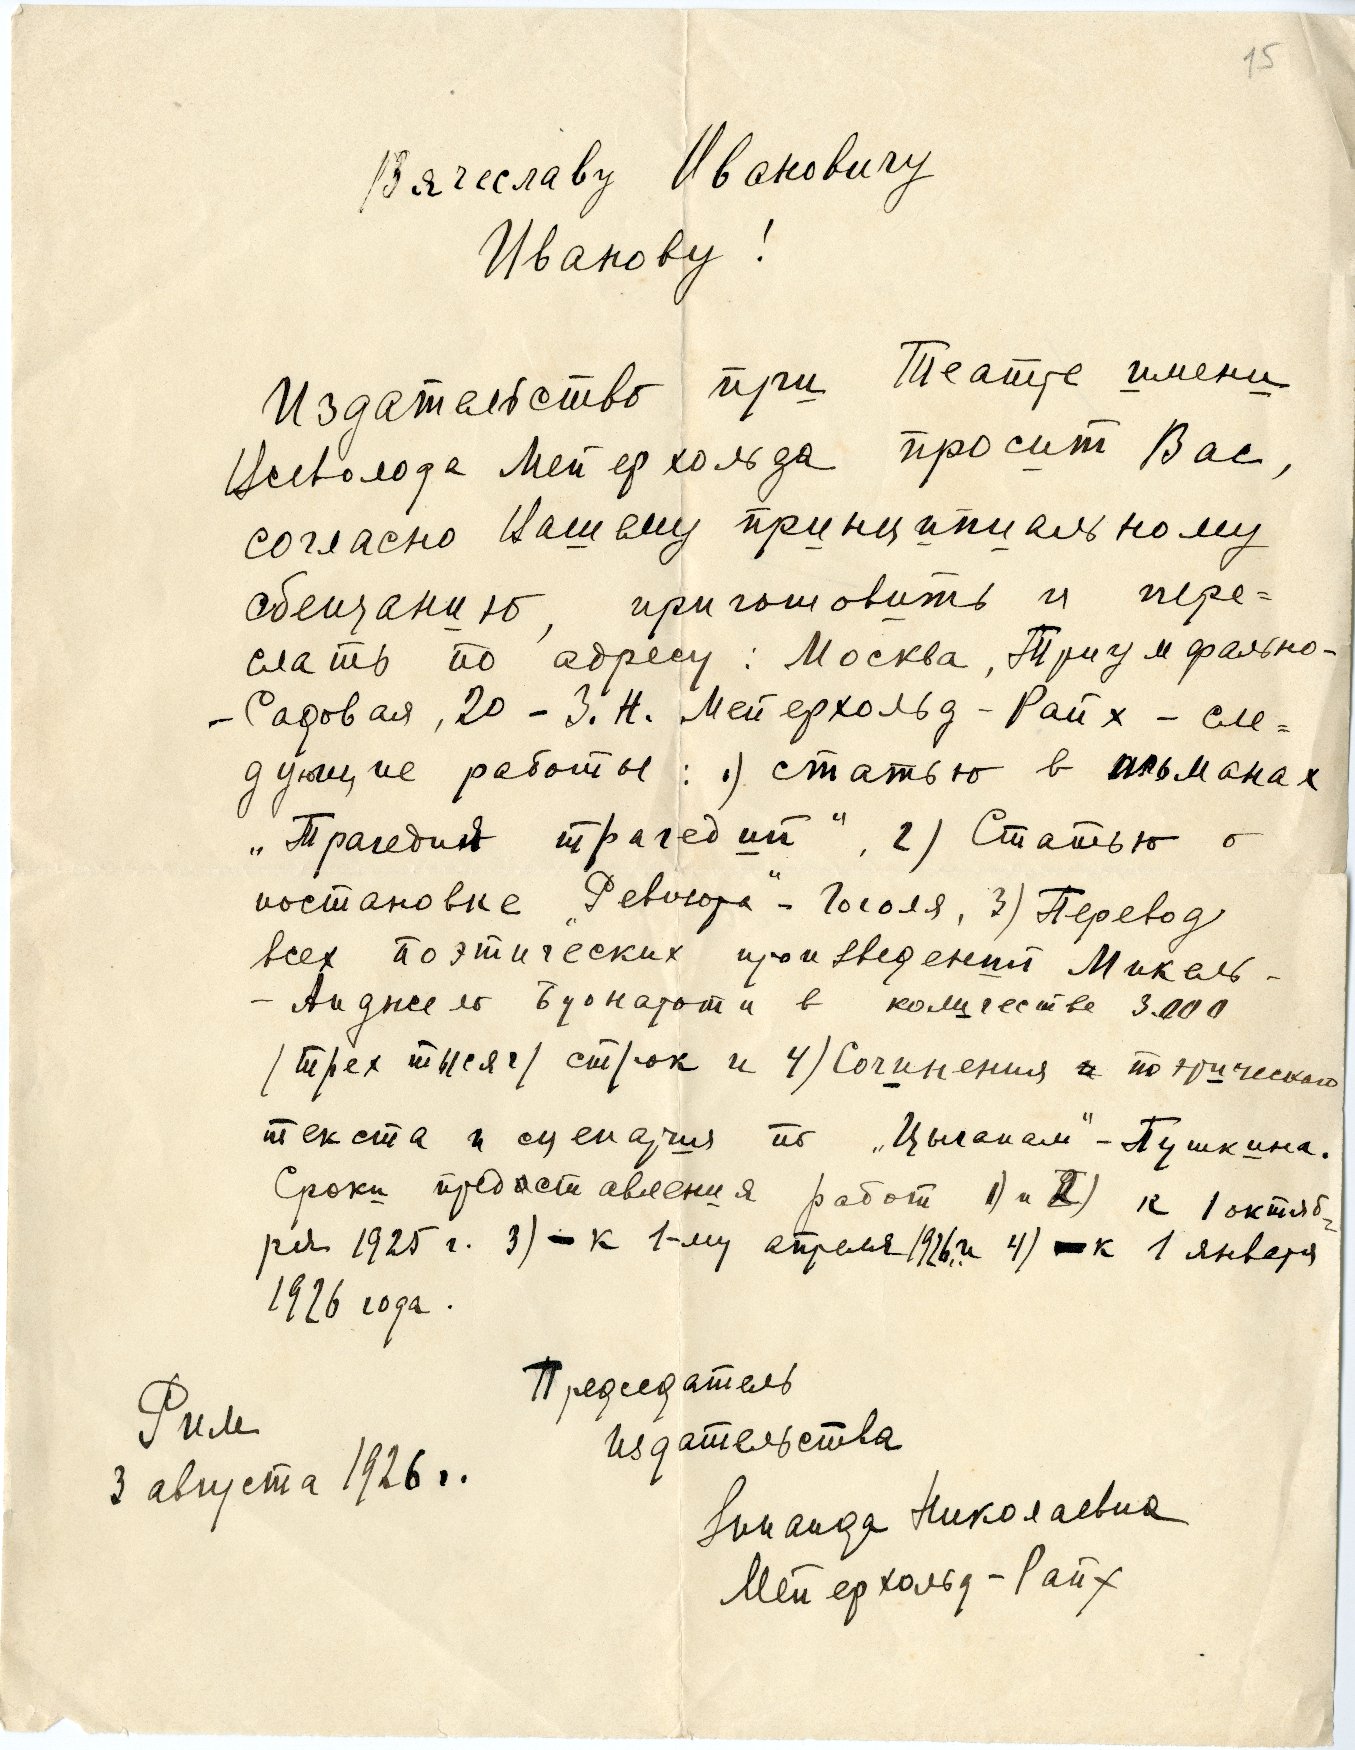 15
Вячеславу Ивановичу
Иванову!
Издательство при Театре имени
Всеволода Мейерхольда просит Вас,
согласно Вашему принципиальному
обещанию, приготовить и пере=
слать по адресу: Москва, Триумфально-
- Садовая, 20 - З. Н. Мейерхольд - Райх - сле=
дующие работы: 1) статью в альманах
„Трагедия трагедий“, 2) Статью о
постановке „Ревизора“ - Гоголя, 3) Перевод
всех поэтических произведений Микель-
- Анджело Буонаротти в количестве 3.000
/трех тысяч/ строк и 4) Сочинения и поэтического
текста и сценария по „Цыганам“ - Пушкина.
Сроки предоставления работ 1) и 2) к 1 октяб=
ря 1925 г. 3) - к 1-му апреля 1926 г. и 4) - к 1 января
1926 года.
Председатель
издательства
Рим
3 августа 1926 г.
Зинаида Николаевна
Мейерхольд - Райх